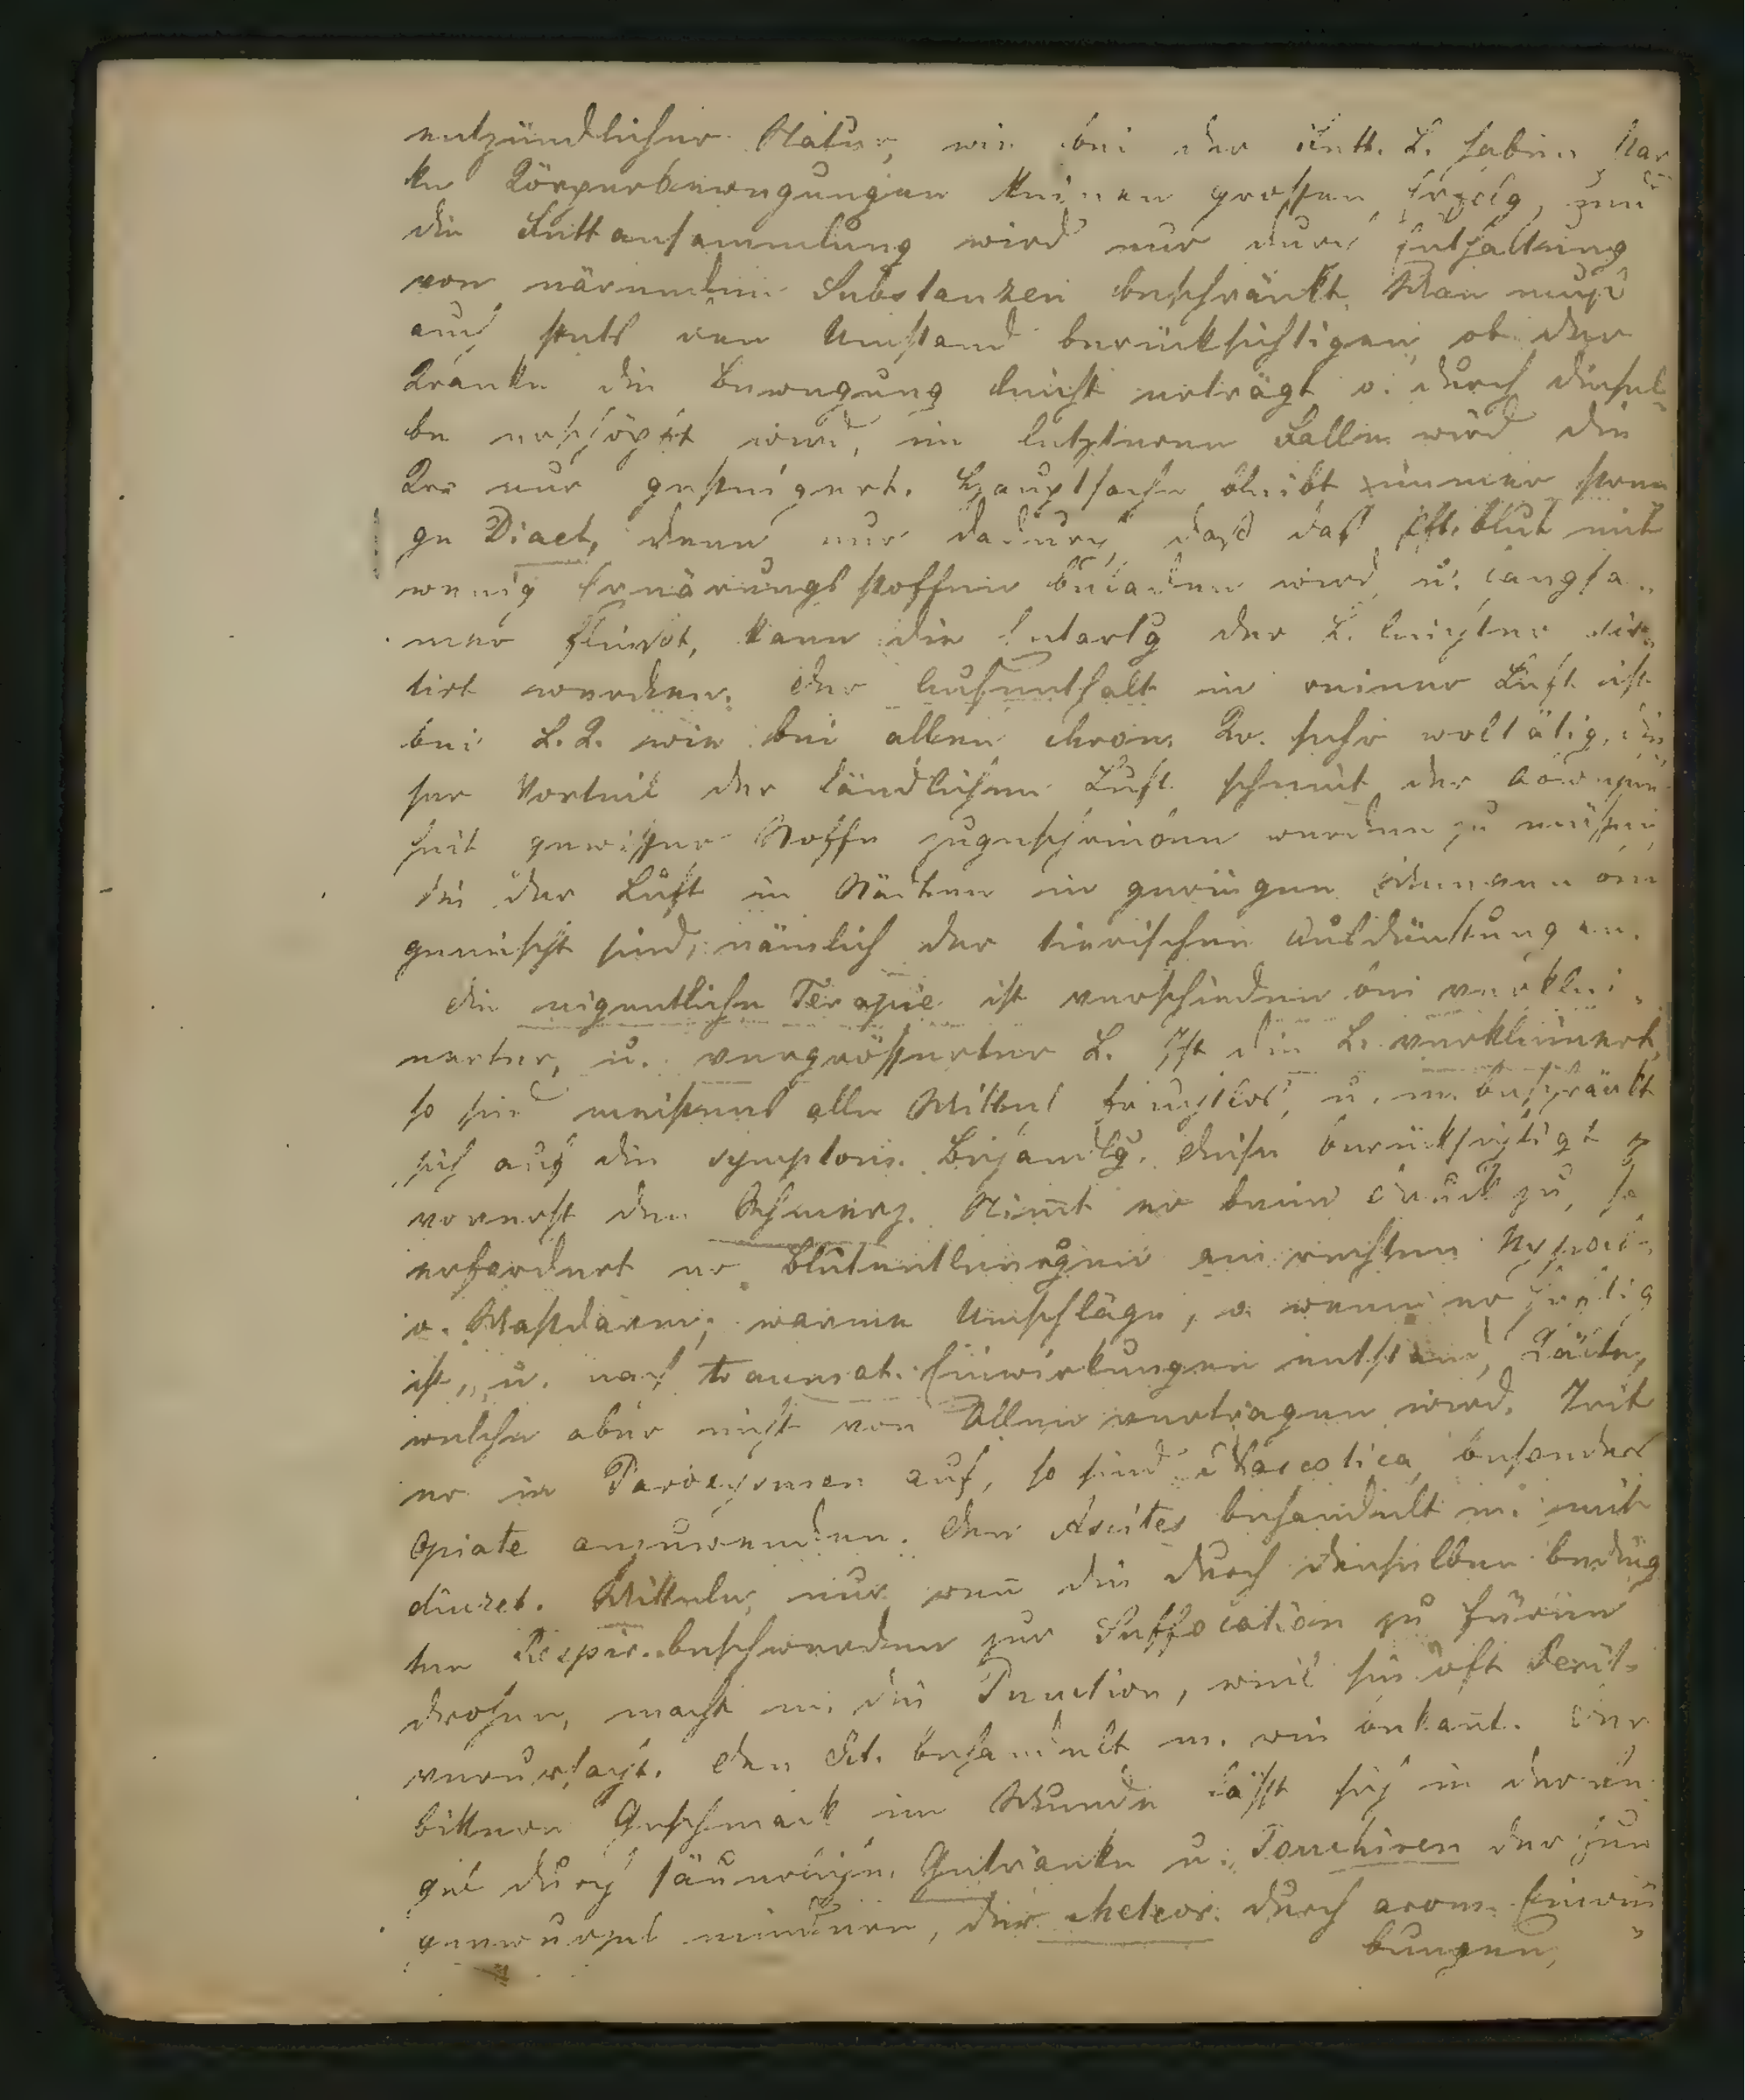 entzündlicher Natur, wie bei der Fett. L. haben star
ke Körperbewegungen keinen grossen Erfolg, denn
die Fettansammlung wird nur durch Enthaltung
von närenden Substanzen beschränkt. Man muß
auch stets den Umstand berücksichtigen, ob der
Kranke die Bewegung leicht verträgt o. durch diesel
be erschöpft wird, im letzteren Falle wird die
Kr. nur gesteigert. Hauptsache bleibt immer stren
ge Diaet, denn nur dadurch, daß das Pft.blut mit
wenig Ernärungsstoffen beladen wird u. langsa-
mer fliesst, kann die Entartg der L. leichter
tirt werden. Der Aufenthalt in reiner Luft ist
bei L.K. wie bei allen chron. Kr. sehr woltätig, die
ser Vorteil der ländlichen Luft scheint der Abwesen
heit gewisser Stoffe zugeschrieben werden zu müssen,
die der Luft in Städten in geringen Mengen bei
gemischt sind, nämlich der tierischen Ausdünstungen.
Die eigentliche Terapie ist verschieden bei verklei-
nerter, u. vergrösserter L. Ist die L. verkleinert,
so sind meistens alle Mittel fruchtlos, u. m. beschränkt
sich auf die symptom. Behandlg. Diese berücksichtigt z
vorerst den Schmerz. Nimt er beim Druck zu, so
erfordert er Blutentleergen am rechten Hypoch.
o. Mastdarm, warme Umschläge, o. wenn er heftig
ist, u. nach traumat. Einwirkungen entstand, Kälte,
welche aber nicht von Allen vertragen wird. Trit
er in Paroxysmen auf, so sind Narcotica, besonders
Opiate anzuwenden. Den Ascites behandelt m. mit
diuret. Mitteln, nur wen die durch denselben beding
ten Respir.beschwerden zur Suffocation zu füren
drohen, macht m. die Punction, weil sie oft Perit.
verursacht. Den Ict. behandelt m. wie bekant. Der
bittere Geschmack im Munde lässt sich in der
gel durch säuerliche Getränke u. Touchiren der Zun
genwurzel mindern, der Meteor. durch arom. Einrei
bungen,